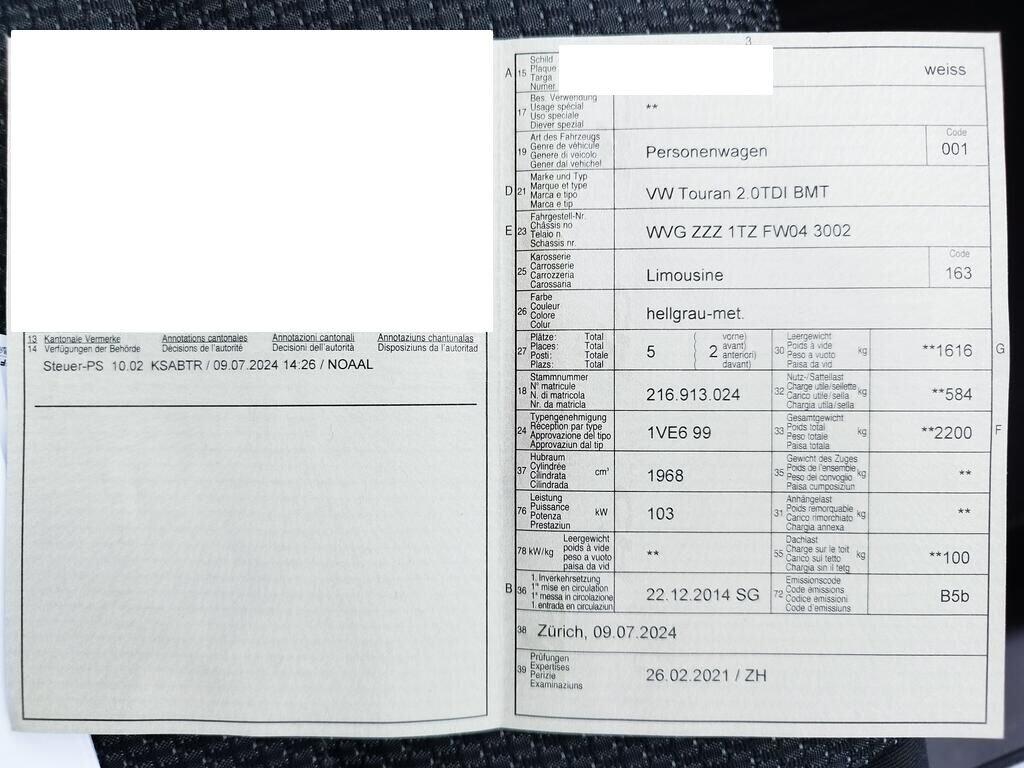 13 Kantonale Vermerke Annotations cantonales Annotazioni cantonali Annotaziuns chantunalas
14 Verfügungen der Behörde Décisions de l'autorité Decisioni dell'autorità Disposiziuns da l'autoritad
Steuer-PS 10.02 KSABTR / 09.07.2024 14:26 / NOAAL
3
A 15 Schild
Plaque
Targa
Numer
weiss
17 Bes. Verwendung
Usage spécial
Uso speciale
Diever spezial
**
19 Art des Fahrzeugs
Genre de véhicule
Genere di veicolo
Gener dal vehichel
Personenwagen
Code
001
D 21 Marke und Typ
Marque et type
Marca e tipo
Marca e tip
VW Touran 2.0TDI BMT
E 23 Fahrgestell-Nr.
Châssis no
Telaio n.
Schassis nr.
WVG ZZZ 1TZ FW04 3002
25 Karosserie
Carrosserie
Carrozzeria
Carossaria
Limousine
Code
163
26 Farbe
Couleur
Colore
Colur
hellgrau-met.
27 Plätze: Total
Places: Total
Posti: Totale
Plazs: Total
5
( vorne)
avant)
2 anteriori)
( davant)
30 Leergewicht
Poids à vide
Peso a vuoto
Paisa da vid
kg
**1616
G
18 Stammnummer
N° matricule
N. di matricola
Nr. da matricla
216.913.024
32 Nutz-/Sattellast
Charge utile/sellette
Carico utile/sella
Chargia utila/sella
kg
**584
24 Typengenehmigung
Réception par type
Approvazione del tipo
Approvaziun dal tip
1VE6 99
33 Gesamtgewicht
Poids total
Peso totale
Paisa totala
kg
**2200
F
37 Hubraum
Cylindrée
Cilindrata
Cilindrada
cm³
1968
35 Gewicht des Zuges
Poids de l'ensemble
Peso del convoglio
Paisa cumposiziun
kg
**
76 Leistung
Puissance
Potenza
Prestaziun
kW
103
31 Anhängelast
Poids remorquable
Carico rimorchiato
Chargia annexa
kg
**
78 kW/kg Leergewicht
poids à vide
peso a vuoto
paisa da vid
**
55 Dachlast
Charge sur le toit
Carico sul tetto
Chargia sin il tetg
kg
**100
B 36 1. Inverkehrsetzung
1re mise en circulation
1a messa in circolazione
1. entrada en circulaziun
22.12.2014 SG
72 Emissionscode
Code émissions
Codice emissioni
Code d'emissiuns
B5b
38 Zürich, 09.07.2024
39 Prüfungen
Expertises
Perizie
Examinaziuns
26.02.2021 / ZH